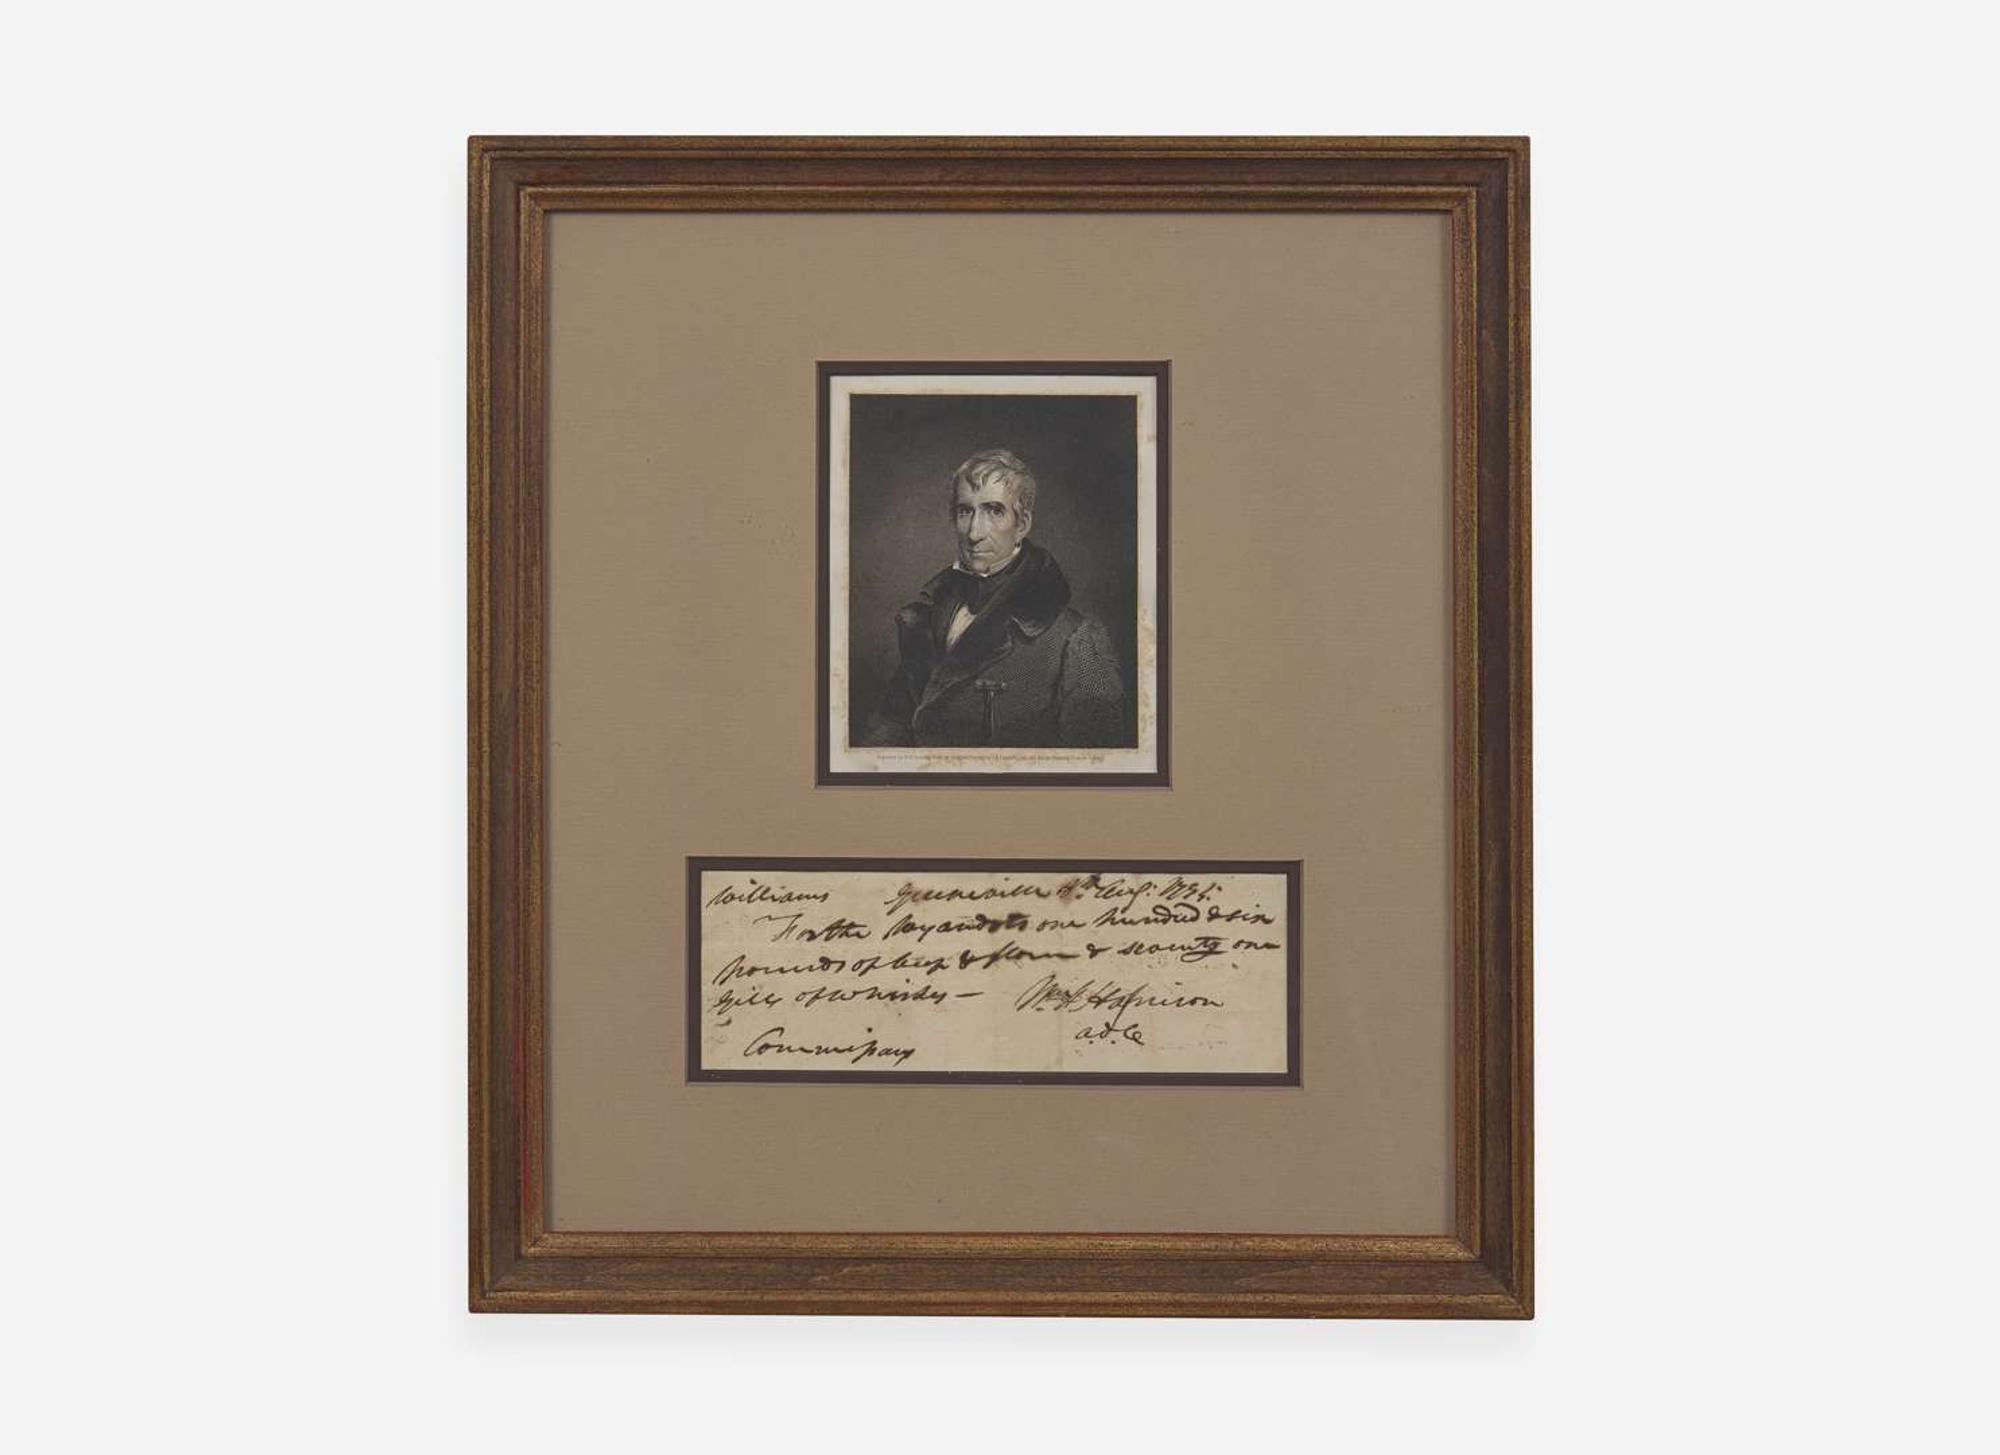 Williams Greeneville 4th Aug: 1795.
For the Wyandots one hundred & six
pounds of beef & flour & seventy one
gills of Whiskey —
Wm H Harrison
a.d.C
Commissary